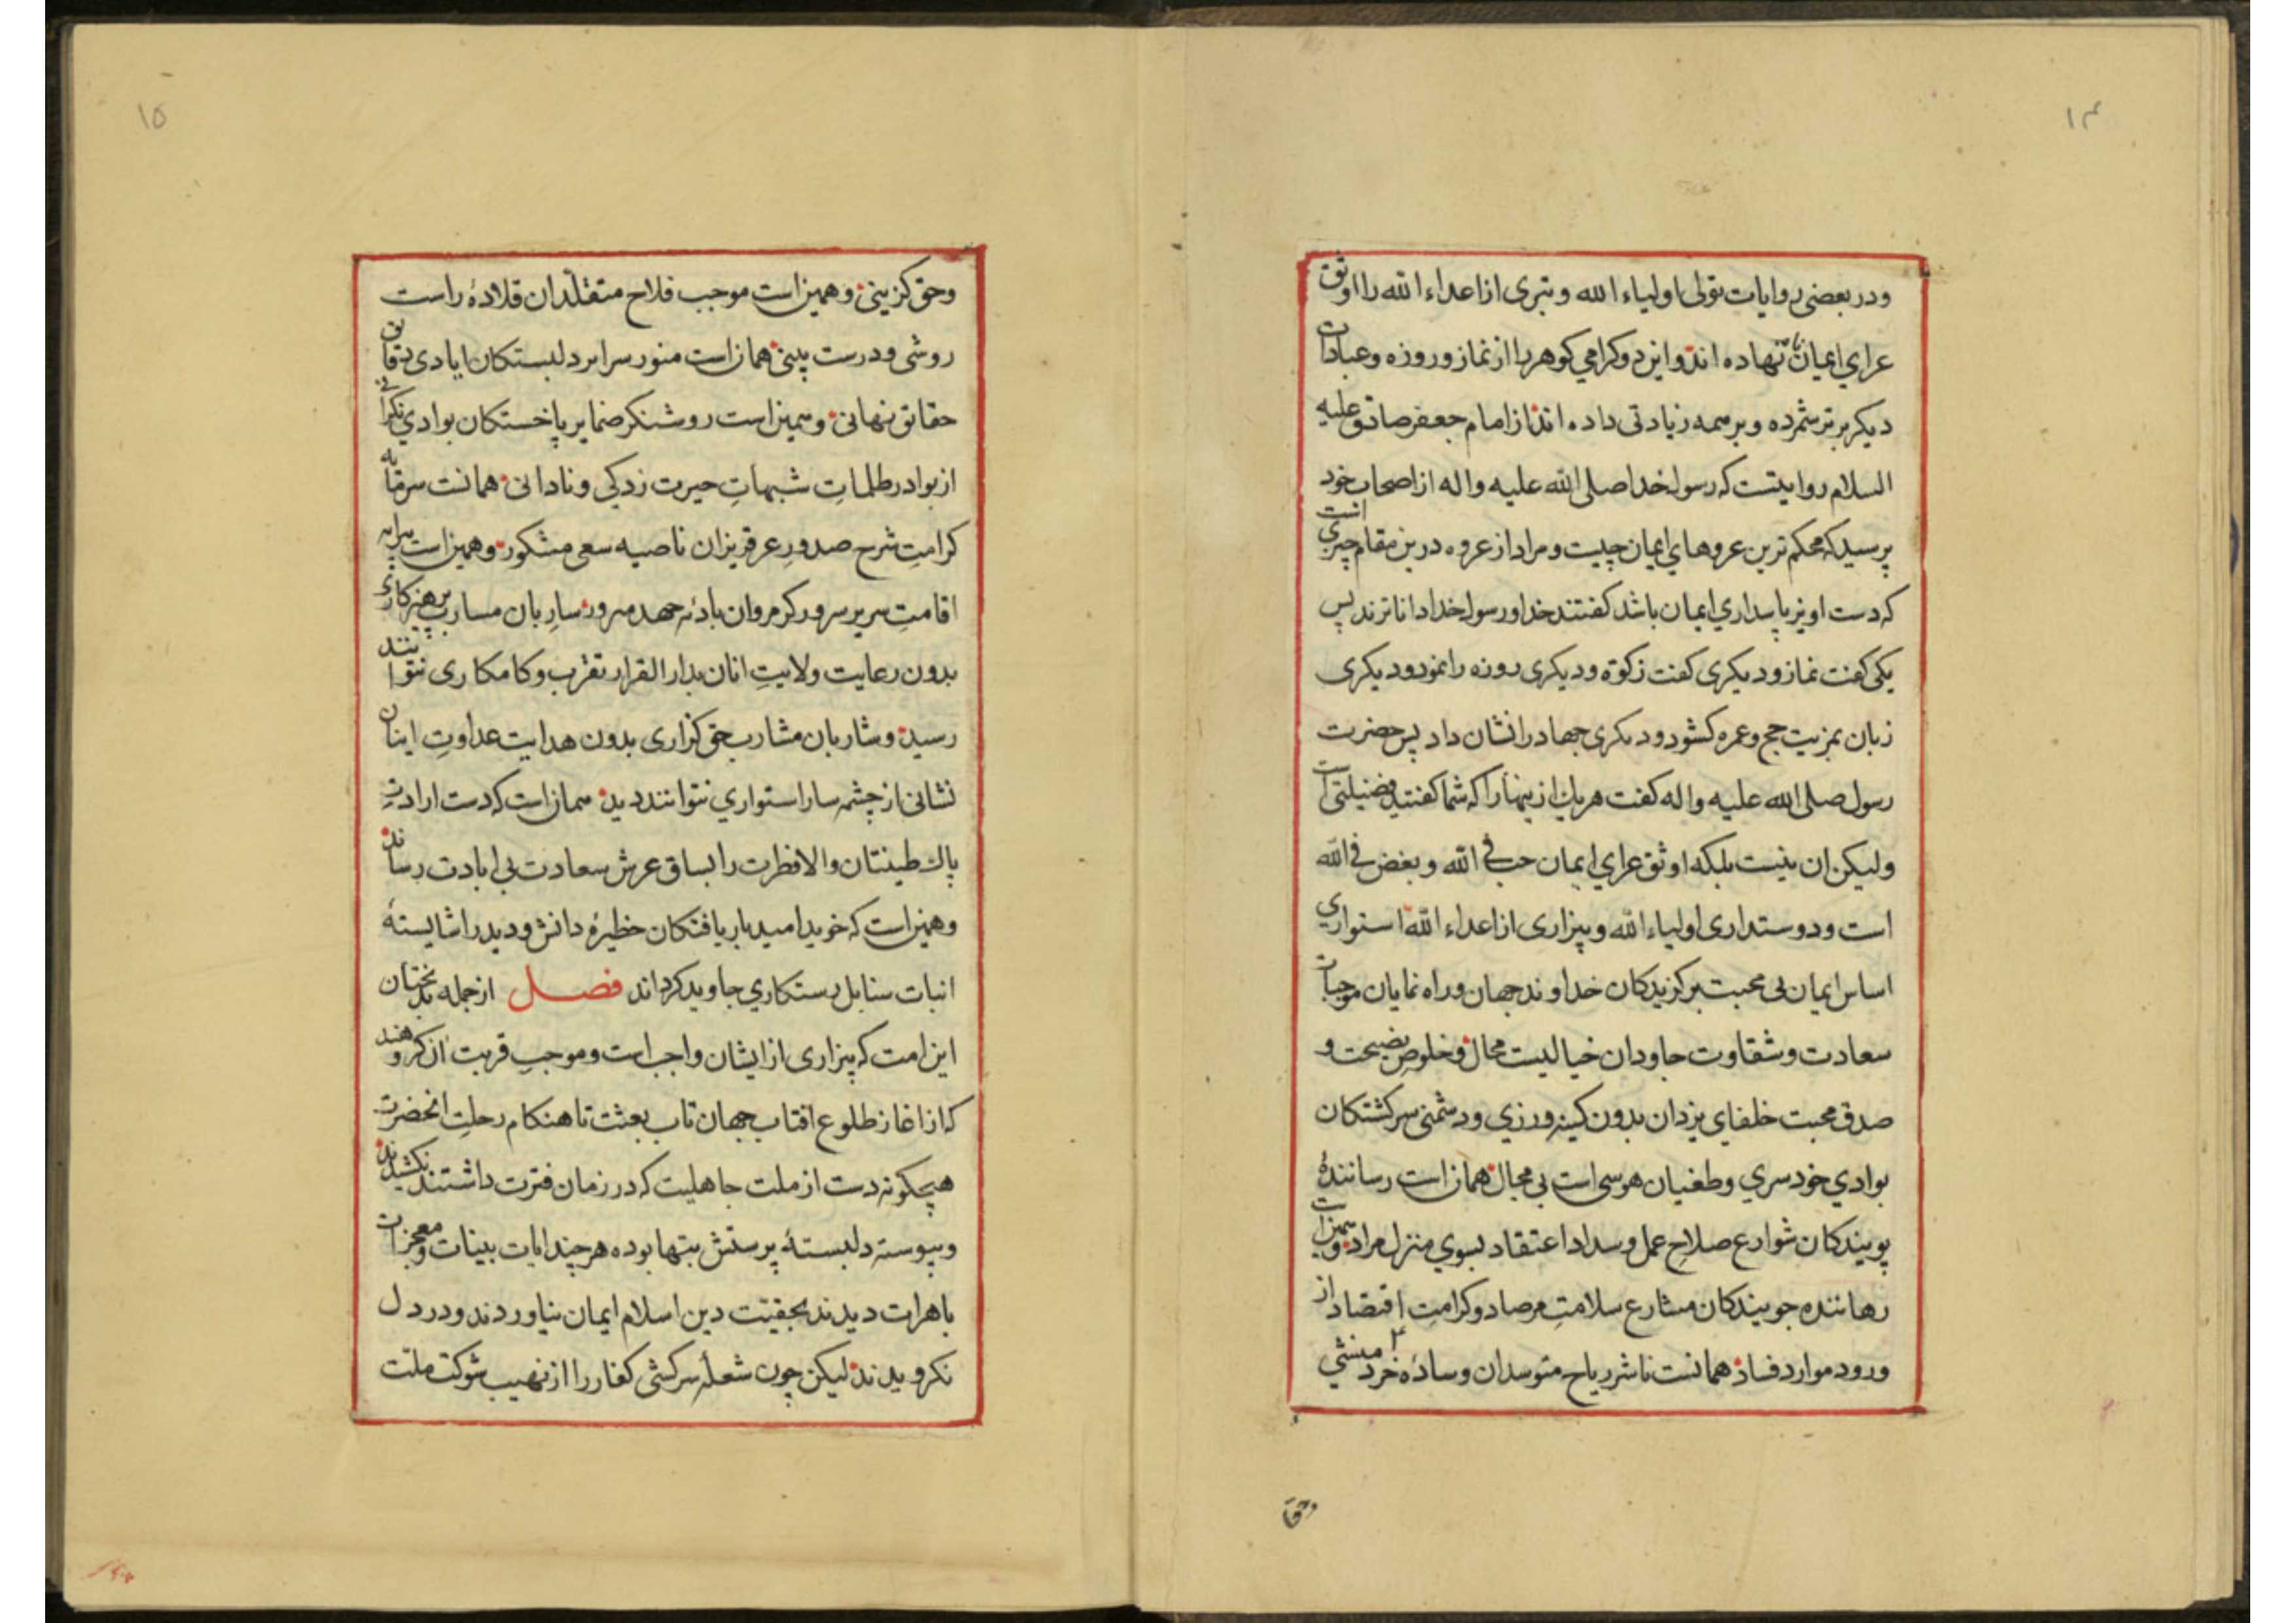 ۱۴
ودر بعضی روایات تولی اولیاء الله وتبری از اعداء الله را اوثق
عرای ایمان نهاده اند واین دو کرامی کوهر را از نماز وروزه وعبادات
دیکر برتر شمرده وبر همه زیادتی داده اند از امام جعفر صادق علیه
السلام روایتست که رسول خدا صلی الله علیه واله از اصحاب خود
پرسید که محکم ترین عروهای ایمان چیست ومراد از عروه درین مقام چیزی است
که دست اویز پاسداری ایمان باشد کفتند خدا ورسول خدا داناترند پس
یکی کفت نماز ودیکری کفت زکوة ودیکری روزه را نمود ودیکری
زبان بمزیت حج وعمره کشود ودیکری جهاد را نشان داد پس حضرت
رسول صلی الله علیه واله کفت هریك ازینها را که شما کفتید فضیلتی است
ولیکن ان نیست بلکه اوثق عرای ایمان حب فی الله وبغض فی الله
است ودوستداری اولیاء الله وبیزاری از اعداء الله استواری
اساس ایمان بی محبت برکزیدکان خداوند جهان وراه نمایان موجبات
سعادت وشقاوت جاودان خیالیست محال وخلوص نصیحت و
صدق محبت خلفای یزدان بدون کینه ورزی ودشمنی سرکشتکان
بوادی خودسری وطغیان هوسی است بی مجال همان است رسانندۀ
پویندکان شوارع صلاح عمل وسداد اعتقاد بسوی منزل مراد وهمین است
رهاننده جویندکان مشارع سلامت مرصاد وکرامت اقتصاد از
ورود موارد فساد همانست ناشر ریاح متوسدان وسادۀ خرد منشی
وحق
۱۵
وحق کزینی وهمین است موجب فلاح متقلدان قلادۀ راست
روشی ودرست بینی همان است منور سرایر دلبستکان ایادی دقایق
حقائق نهانی وهمین است روشنکر ضمایر پاخستکان بوادی نکرانی
از بوادر ظلمات شبهات حیرت زدکی ونادانی همانست سرمایه
کرامت شرح صدور عرقریزان ناصیه سعی مشکور وهمین است پیرایه
اقامت سریر سرور کرمروان بادیه جهد مبرور ساربان مسارب پرهیزکاری
بدون رعایت ولایت انان بدار القرار تقرب وکامکاری نتوانند
رسید وشاربان مشارب حق کزاری بدون هدایت عداوت اینان
نشانی از چشمه سار استواری نتوانند دید همان است که دست ارادت
پاك طینتان والا فطرت را بساق عرش سعادت بی ابادت رساند
وهمین است که خوید امید باریافتکان خطیرۀ دانش ودید را شایستۀ
انبات سنابل رستکاری جاوید کرداند فصل از جمله بدبختان
این امت که بیزاری از ایشان واجب است وموجب قربت ان کروهند
که از اغاز طلوع افتاب جهان تاب بعثت تا هنکام رحلت انحضرت
هیچکونه دست از ملت جاهلیت که در زمان فترت داشتند نکشیدند
وپیوسته دلبستۀ پرستش بتها بوده هرچند ایات بینات ومعجزات
باهرات دیدند بحقیت دین اسلام ایمان نیاوردند ودر دل
نکرویدند لیکن چون شعلۀ سرکشی کفار را از نهیب شوکت ملت